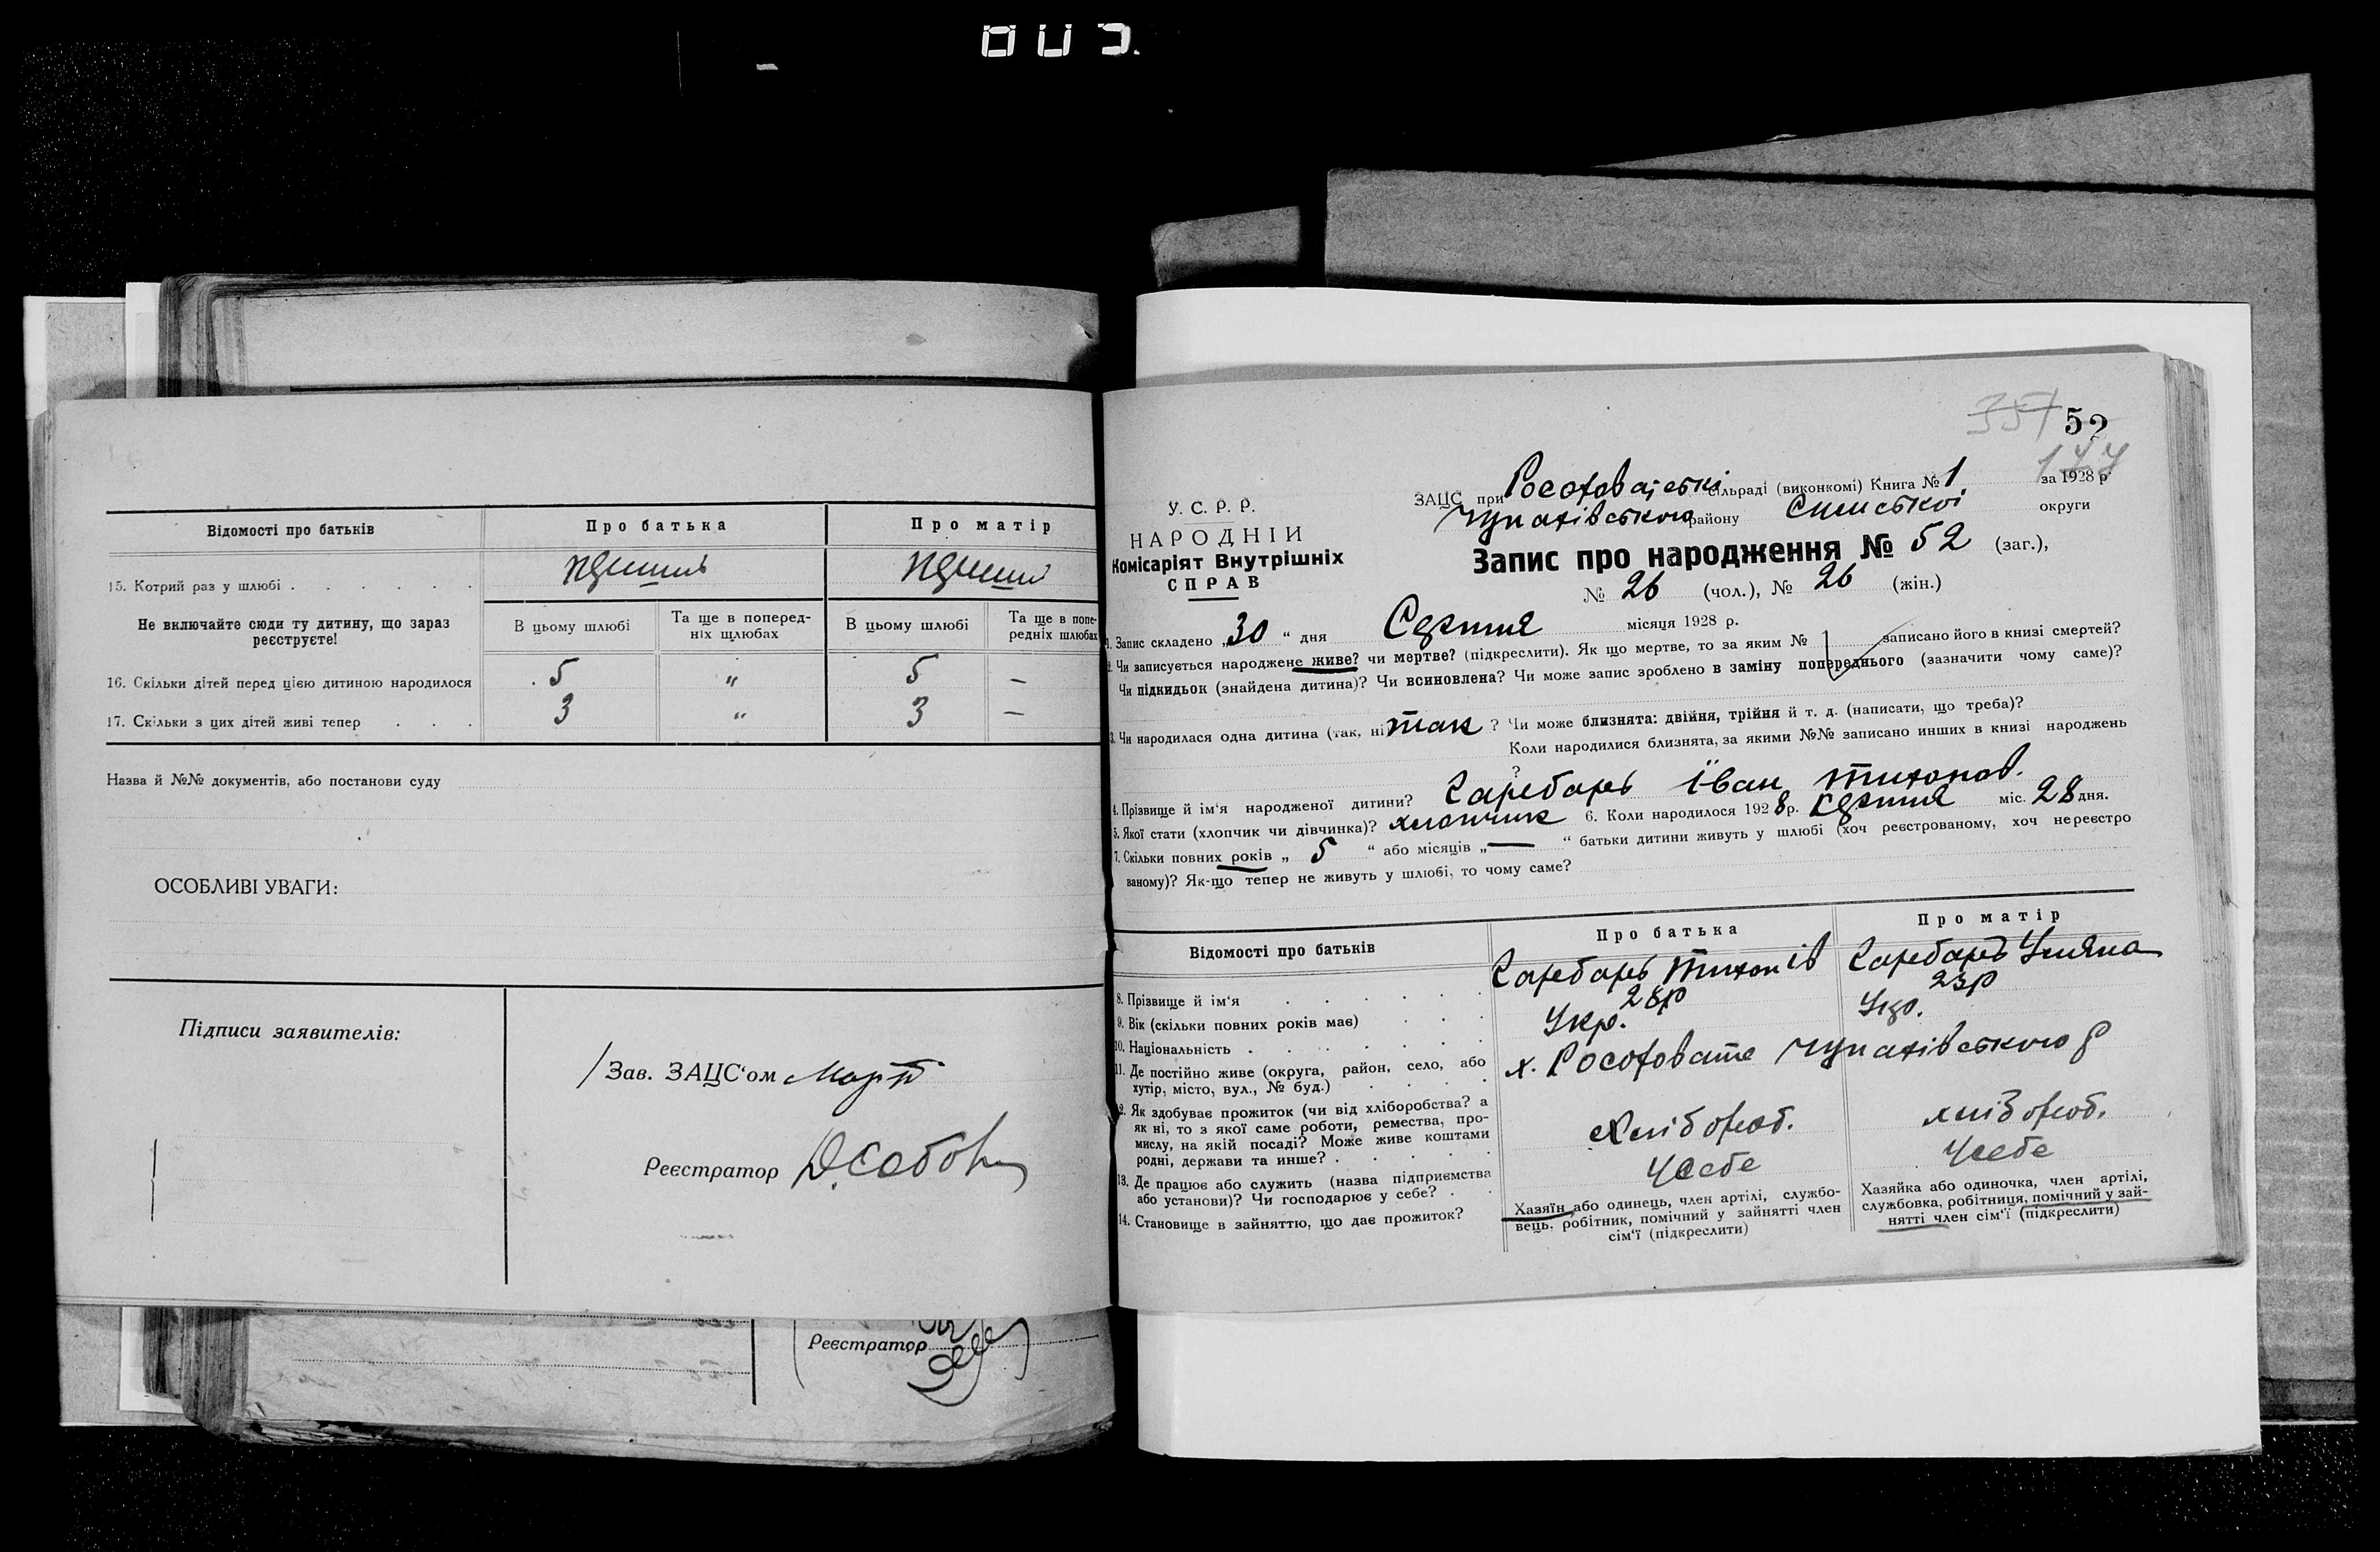 005.
Відомості про батьків
Про батька
Про матір
15. Котрий раз у шлюбі . . . . . .
Не включайте сюди ту дитину, що зараз
реєструєте!
В цьому шлюбі
Та ще в поперед-
ніх шлюбах
В цьому шлюбі
Та ще в попе-
редніх шлюбах
16. Скільки дітей перед цією дитиною народилося 5 " 5 —
17. Скільки з цих дітей живі тепер . . . 3 " 3 —
Назва й №№ документів, або постанови суду
ОСОБЛИВІ УВАГИ:
Підписи заявителів:
Зав. ЗАЦС'ом
Реєстратор
Реєстратор
357 52
У. С. Р. Р.
НАРОДНІЙ
Комісаріят Внутрішніх
СПРАВ
ЗАЦС при сільраді (виконкомі) Книга № 1 за 1928 р
Чупахівського району Сумської округи
Запис про народження № 52 (заг.),
№ 26 (чол.), № 26 (жін.)
1. Запис складено „30" дня Серпня місяця 1928 р.
2. Чи записується народжене живе? чи мертве? (підкреслити). Як що мертве, то за яким № записано його в книзі смертей?
Чи підкидьок (знайдена дитина)? Чи всиновлена? Чи може запис зроблено в заміну попереднього (зазначити чому саме)?
3. Чи народилася одна дитина (так, ні так ? Чи може близнята: двійня, трійня й т. д. (написати, що треба)?
Коли народилися близнята, за якими №№ записано инших в книзі народжень
?
4. Прізвище й ім'я народженої дитини? Іван Тихонов.
5. Якої стати (хлопчик чи дівчинка)? хлопчик 6. Коли народилося 1928 р. Серпня міс. 28 дня.
7. Скільки повних років „ 5 " або місяців „ — " батьки дитини живуть у шлюбі (хоч реєстрованому, хоч нереєстро
ваному)? Як-що тепер не живуть у шлюбі, то чому саме?
Відомості про батьків
Про батька
Про матір
8. Прізвище й ім'я . . . . . .
9. Вік (скільки повних років має) . . . 28р 23р
10. Національність . . . . . . . Укр. Укр.
11. Де постійно живе (округа, район, село, або
хутір, місто, вул., № буд.) . . . .
х. Чупахівського р
12. Як здобуває прожиток (чи від хліборобства? а
як ні, то з якої саме роботи, ремества, про-
мислу, на якій посаді? Може живе коштами
родні, держави та инше? . . . . .
Хлібороб.
хлібороб.
13. Де працює або служить (назва підприємства
або установи)? Чи господарює у себе? . .
У себе
У себе
14. Становище в зайняттю, що дає прожиток?
Хазяїн або одинець, член артілі, службо-
вець. робітник, помічний у зайнятті член
сім'ї (підкреслити)
Хазяйка або одиночка, член артілі,
службовка, робітниця, помічний у зай-
нятті член сім'ї (підкреслити)